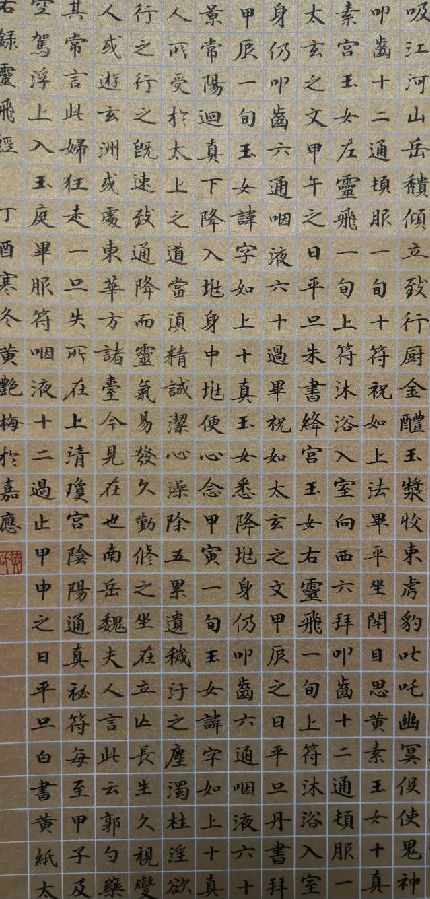 吸江河山岳積傾立致行厨金醴玉漿收束虎豹叱吒幽冥役使鬼神
叩齒十二通頓服一旬十符祝如上法畢平坐閉目思黄素玉女十真
素宮玉女左靈飛一旬上符沐浴入室向西六拜叩齒十二通頓服一
太玄之文甲午之日平旦朱書絳宮玉女右靈飛一旬上符沐浴入室
身仍叩齒六通咽液六十過畢祝如太玄之文甲辰之日平旦丹書拜
甲辰一旬玉女諱字如上十真玉女悉降地身仍叩齒六通咽液六十
景常陽迴真下降入地身中地便心念甲寅一旬玉女諱字如上十真
人所受於太上之道當須精誠潔心澡除五累遺穢汙之塵濁杜淫欲
行之行之既速致通降而靈氣易發久勤修之坐在立亡長生久視變
人或遊玄洲或處東華方諸臺今見在也南岳魏夫人言此云郭勺藥
其常言此婦狂走一旦失所在上清瓊宮陰陽通真祕符每至甲子及
空駕浮上入玉庭畢服符咽液十二過止甲申之日平旦白書黄紙太
右録靈飛經 丁酉寒冬黄艷梅於嘉應